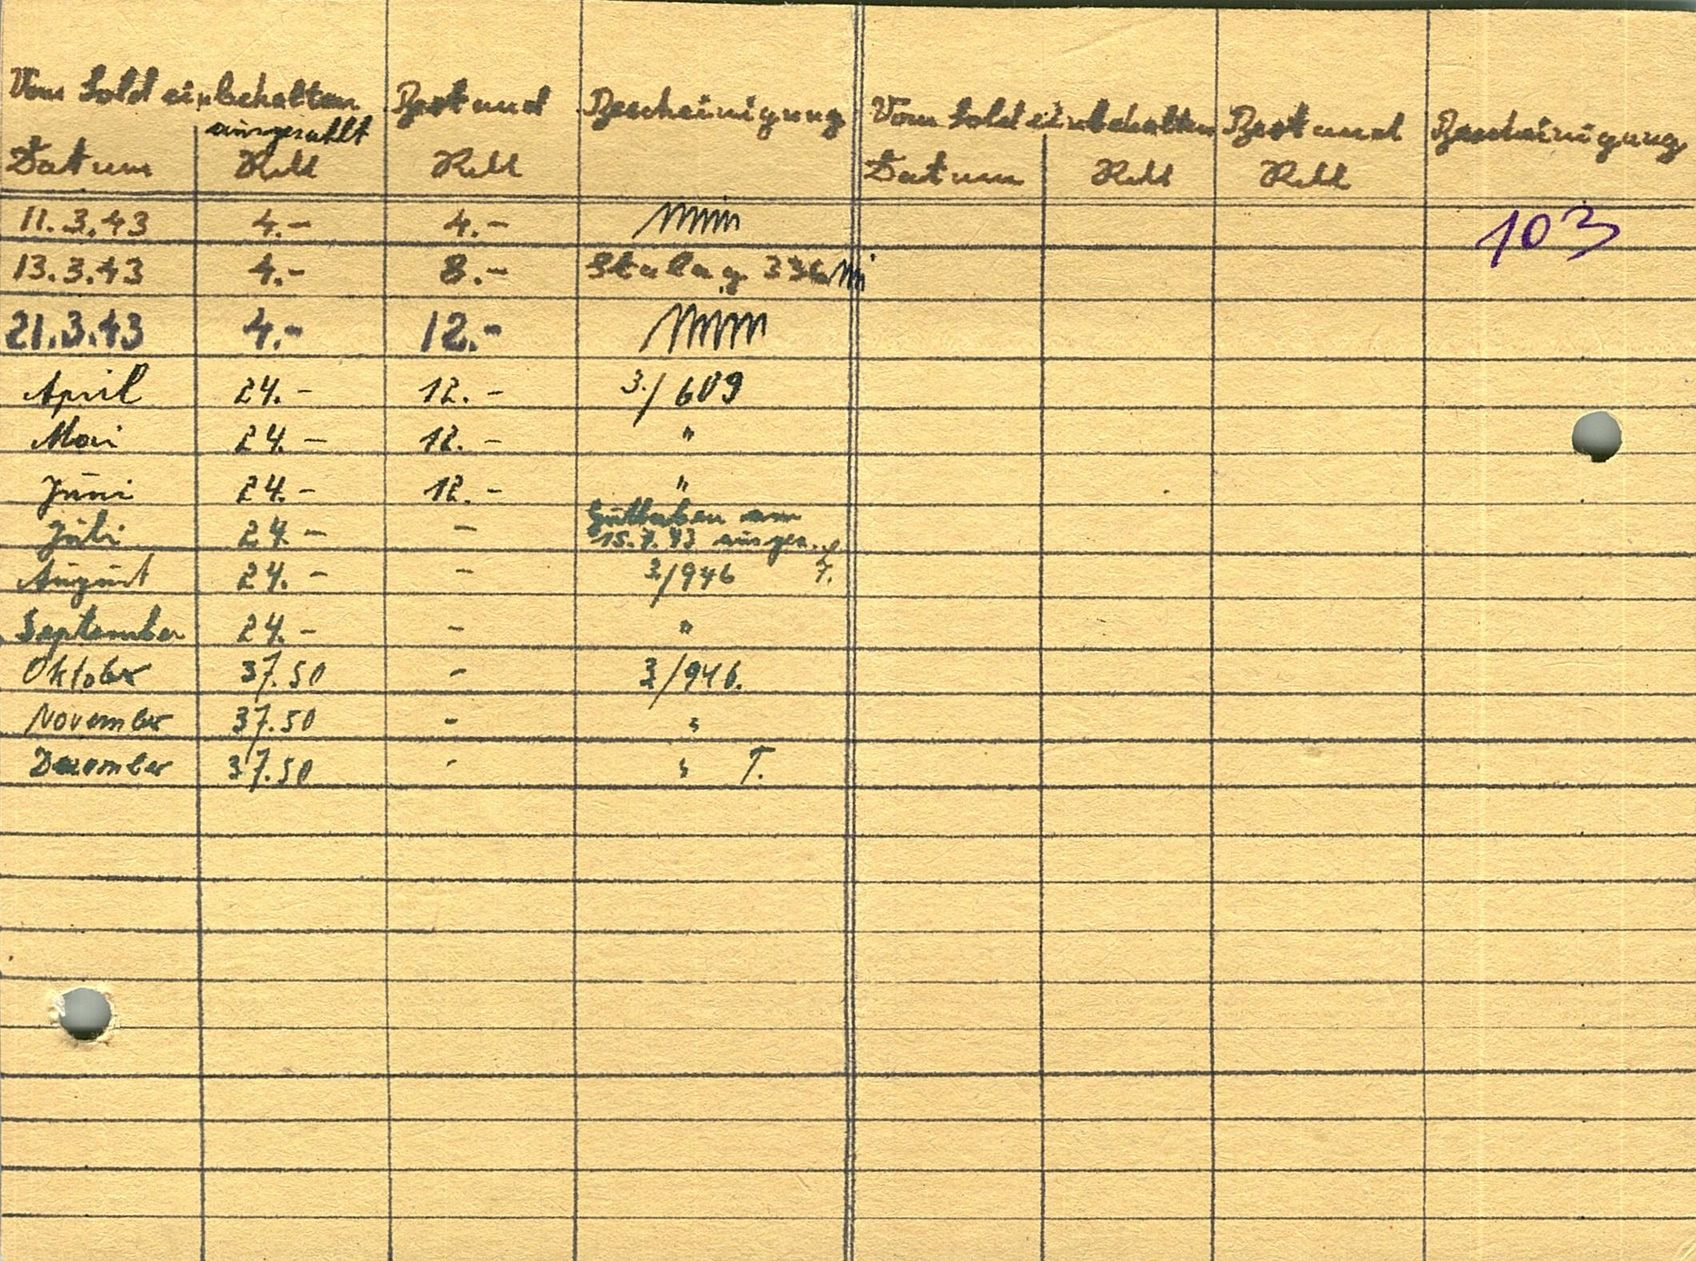 Vom Sold einbehalten Bestand Bescheinigung Vom Sold einbehalten Bestand Bescheinigung
ausgezahlt
Datum RM RM Datum RM RM
11.3.43 4.- 4.- 103
13.3.43 4.- 8.- Stalag 336
21.3.43 4.- 12.-
April 24.- 12.- 3/609
Mai 24.- 12.- "
Juni 24.- 12.- "
Juli 24.- - Guthaben am
15.7.43 ausgez.
August 24.- - 3/946 T.
September 24.- - "
Oktober 37.50 - 3/946.
November 37.50 - "
Dezember 37.50 - " T.